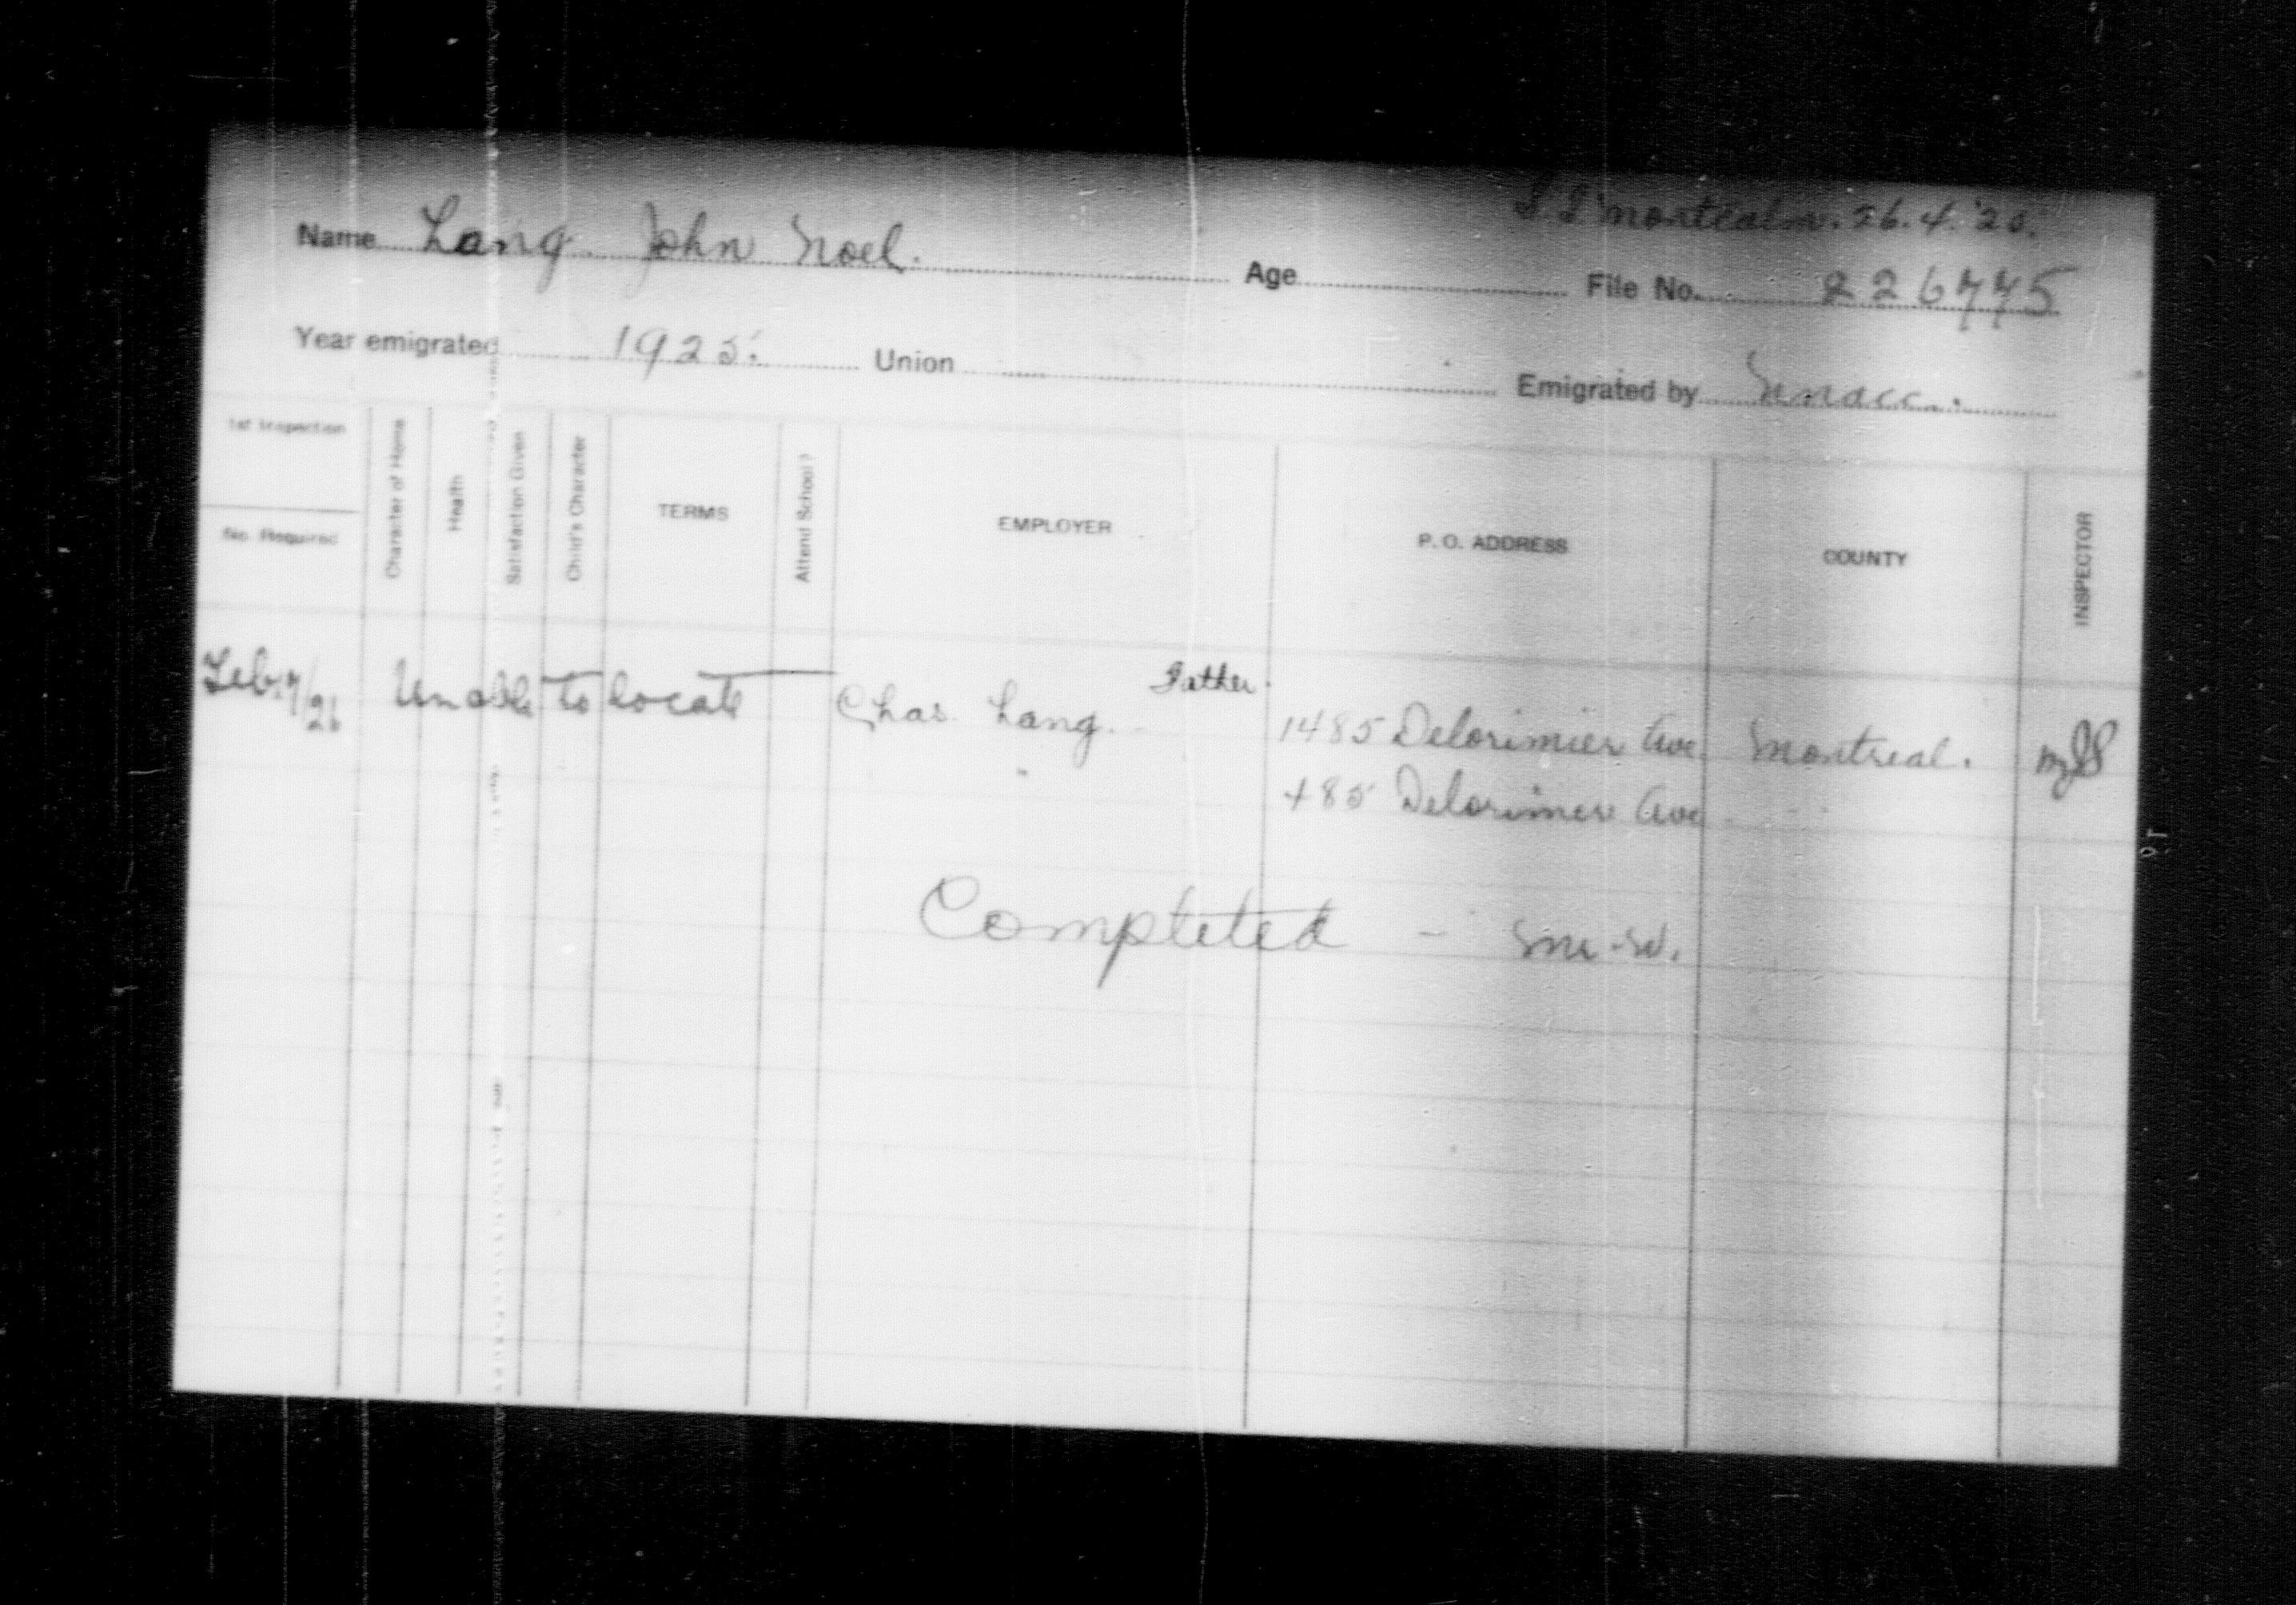 S.S. Montcalm. 26.4.'25.
Name Lang John Noel. Age File No. 226775
Year emigrated 1925. Union Emigrated by
1st Inspection
No. Required
Character of Home
Health
Satisfaction Given
Child's Character
TERMS
Attend School?
EMPLOYER
P. O. ADDRESS
COUNTY
INSPECTOR
Feb. 7/26 Unable to locate Chas. Lang. Father. 1485 Delorimier Ave Montreal.
485 Delorimier Ave
Completed -